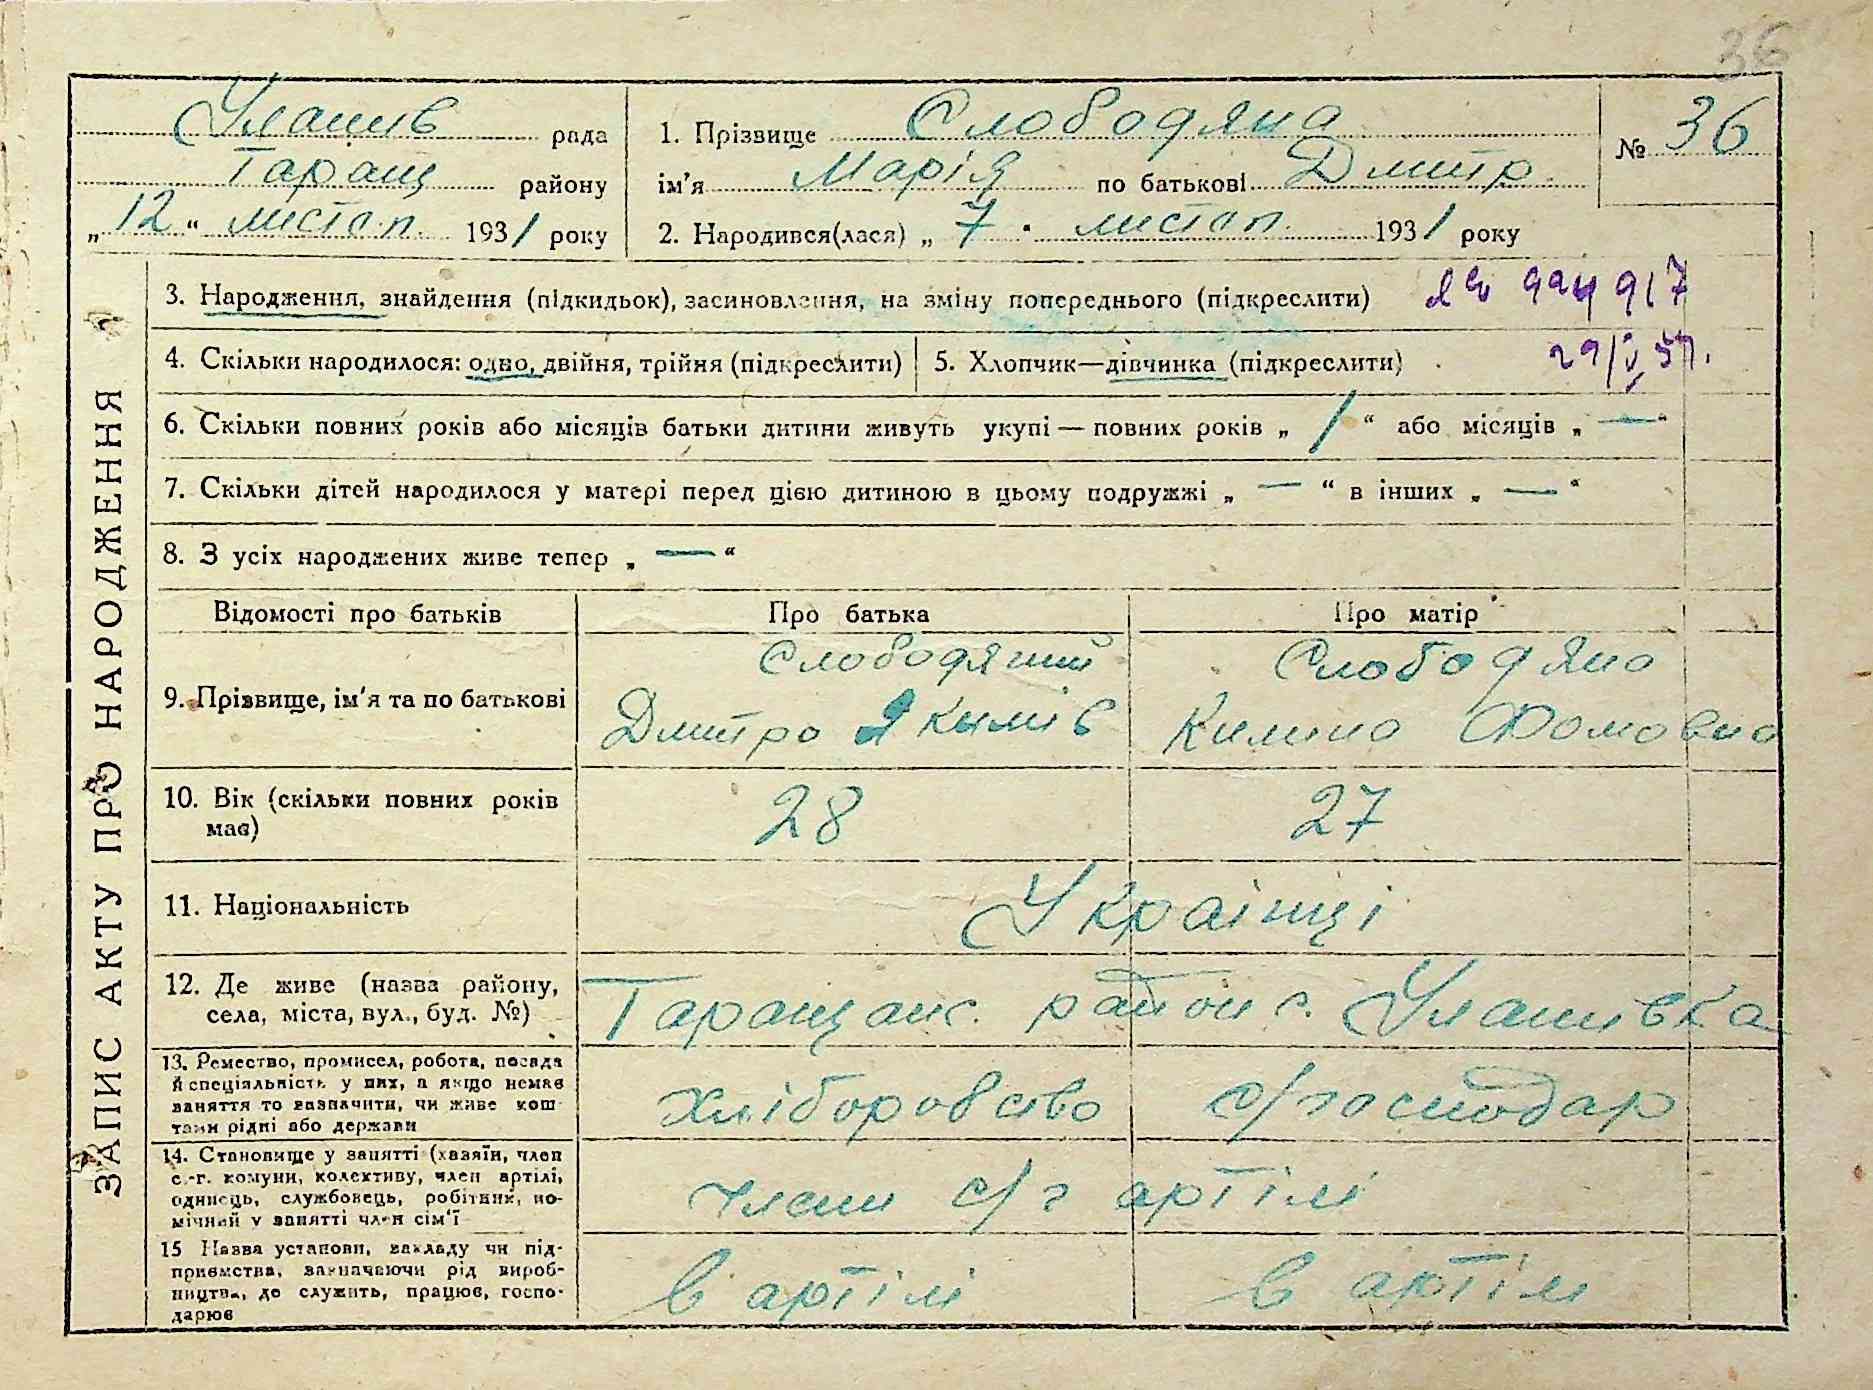 36
Уланив рада
Таращ району
„12“ листоп. 1931 року
1. Прізвище Слободяна
ім'я Марія по батькові Дмитр.
2. Народився(лася) „ 7 . листоп. 1931 року
№ 36
ЗАПИС АКТУ ПРО НАРОДЖЕННЯ
3. Народження, знайдення (підкидьок), засиновлення, на зміну попереднього (підкреслити)
994917
4. Скільки народилося: одно, двійня, трійня (підкреслити) 5. Хлопчик—дівчинка (підкреслити)
29/V
6. Скільки повних років або місяців батьки дитини живуть укупі — повних років „ 1 “ або місяців „ — “
7. Скільки дітей народилося у матері перед цією дитиною в цьому подружжі „ — “ в інших „ — “
8. З усіх народжених живе тепер „ — “
Відомості про батьків Про батька Про матір
9. Прізвище, ім'я та по батькові
Слободяний
Дмитро Якимів
Слободяна
Килина Фомовна
10. Вік (скільки повних років
має)
28 27
11. Національність Українці
12. Де живе (назва району,
села, міста, вул., буд. №)
Таращанс. район с. Уланивка
13. Ремество, промисел, робота, посада
й спеціальність у них, а якщо немає
заняття то зазначити, чи живе кош-
тами рідні або держави
хліборобство с/господар
14. Становище у занятті (хазяїн, член
с.-г. комуни, колективу, член артілі,
одинець, службовець, робітник, по-
мічний у занятті член сім'ї
члени с/г артілі
15 Назва установи, закладу чи під-
приємства, зазначаючи рід вироб-
ництва, де служить, працює, госпо-
дарює
в артілі в артілі